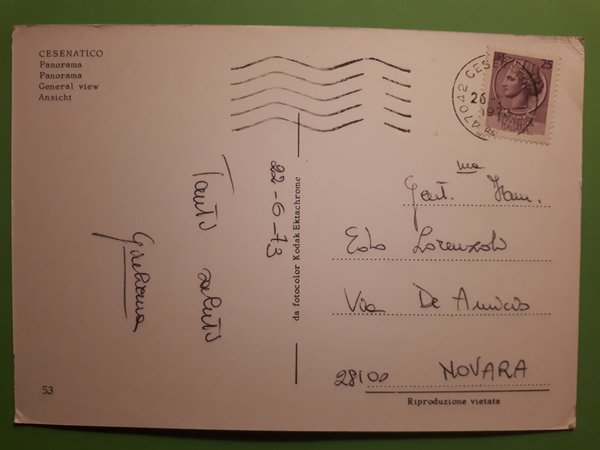 CESENATICO
Panorama
Panorama
General view
Ansicht
25
47042 CES
26
Tanti saluti
Graziana
22-6-73
da fotocolor Kodak Ektachrome
Gent.ma Fam.
Lorenzoli
Via De Amicis
28100 NOVARA
53
Riproduzione vietata